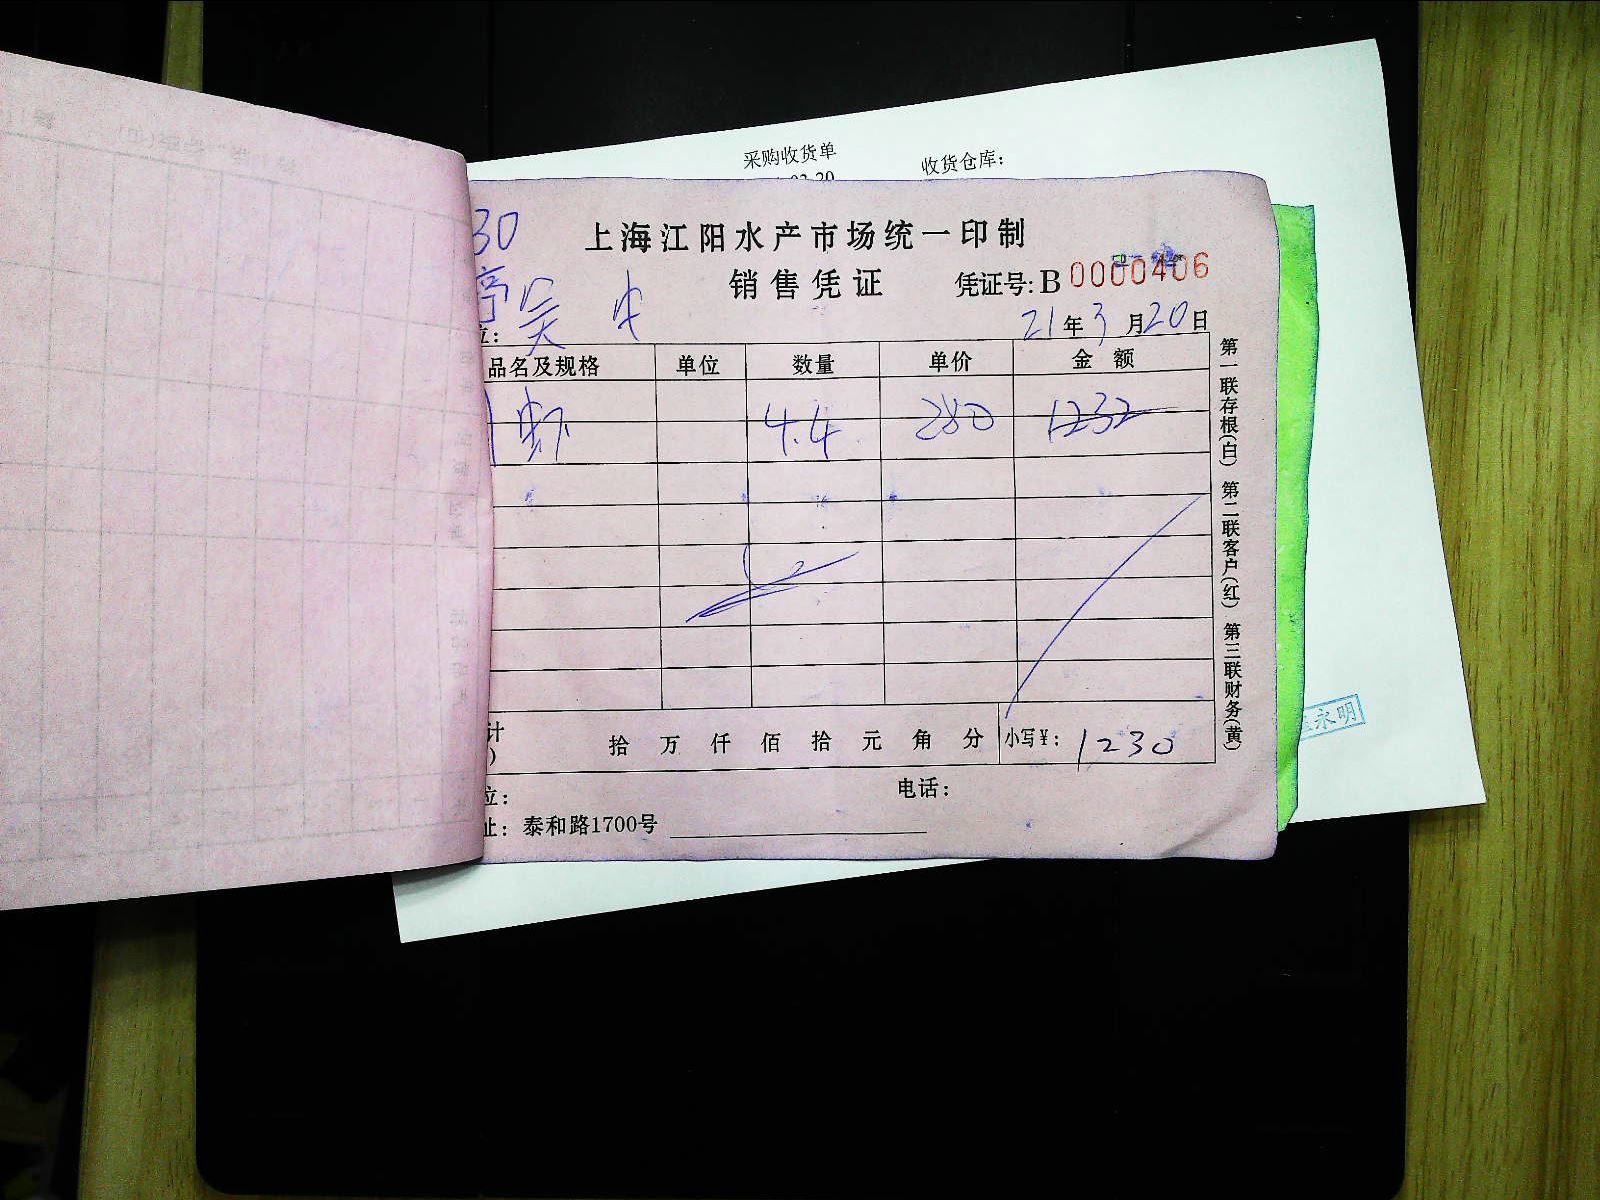 采购收货单
收货仓库:
30
上海江阳水产市场统一印制
销售凭证
凭证号: B 0000406
亭 吴
位:
21年3月20日
品名及规格 单位 数量 单价 金额
虾 4.4 280 1232
计 拾 万 仟 佰 拾 元 角 分 小写¥: 1230
)
位: 电话:
址: 泰和路1700号
第一联存根(白) 第二联客户(红) 第三联财务(黄)
永明